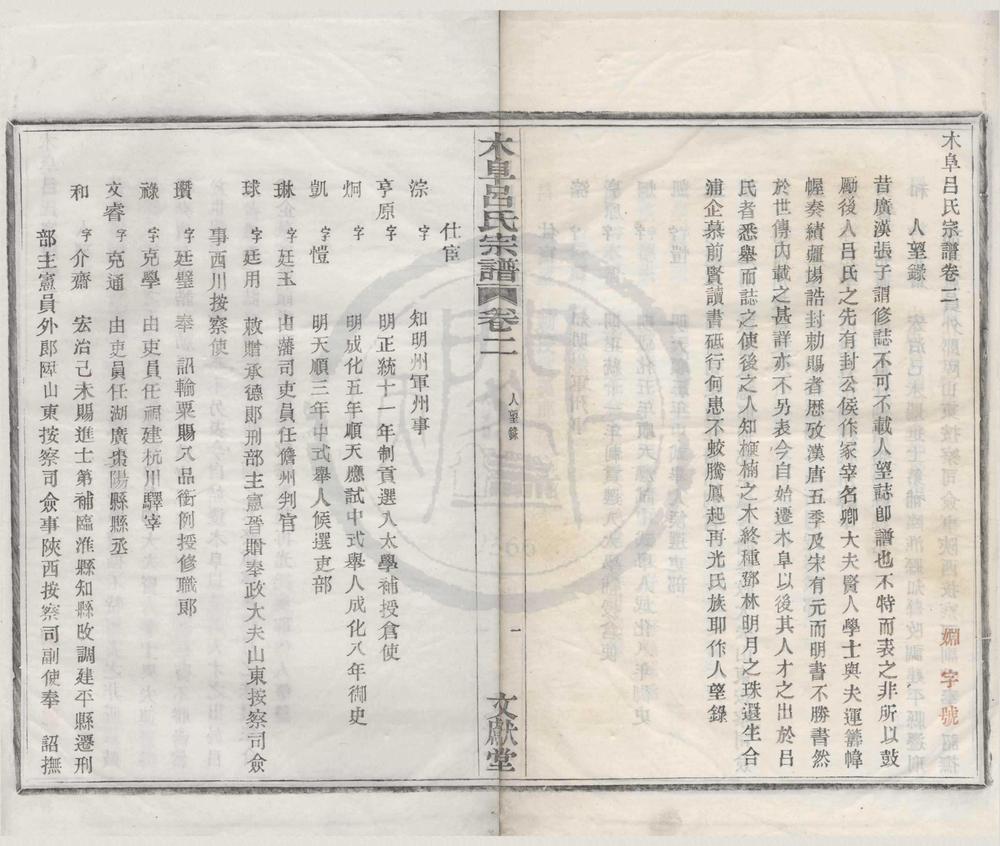 木阜呂氏宗譜卷二
嫻字號
人望錄
昔廣漢張子謂修誌不可不載人望誌卽譜也不特而表之非所以鼓
勵後人呂氏之先有封公侯作家宰名卿大夫賢人學士與夫運籌幃
幄奏績疆場誥封勅賜者歴攷漢唐五季及宋有元而明書不勝書然
於世傳內載之甚詳亦不另表今自始遷木阜以後其人才之出於呂
民者悉舉而誌之使後之人知楩楠之木終種鄧林明月之珠還生合
浦企慕前賢讀書砥行何患不蛟騰鳳起再光氏族耶作人望錄
木阜呂氏宗譜 卷二
人望錄
一
文獻堂
仕宦
淙 字 知明州軍州事
亨原 字 明正統十一年制貢選入太學補授倉使
炯 字 明成化五年順天應試中式舉人成化八年御史
凱 字愷 明天順三年中式舉人候選吏部
琳 字廷玉 由藩司吏員任儋州判官
球 字廷用 敕贈承德郎刑部主憲晉贈奉政大夫山東按察司僉
事西川按察使
瓚 字廷璧 奉 詔輸粟賜八品銜例授修職郎
祿 字克學 由吏員任福建杭川驛宰
文睿 字克通 由吏員任湖廣棗陽縣縣丞
和 字介齋 宏治己未賜進士第補臨淮縣知縣攺調建平縣遷刑
部主憲員外郎陞山東按察司僉事陝西按察司副使奉 詔撫